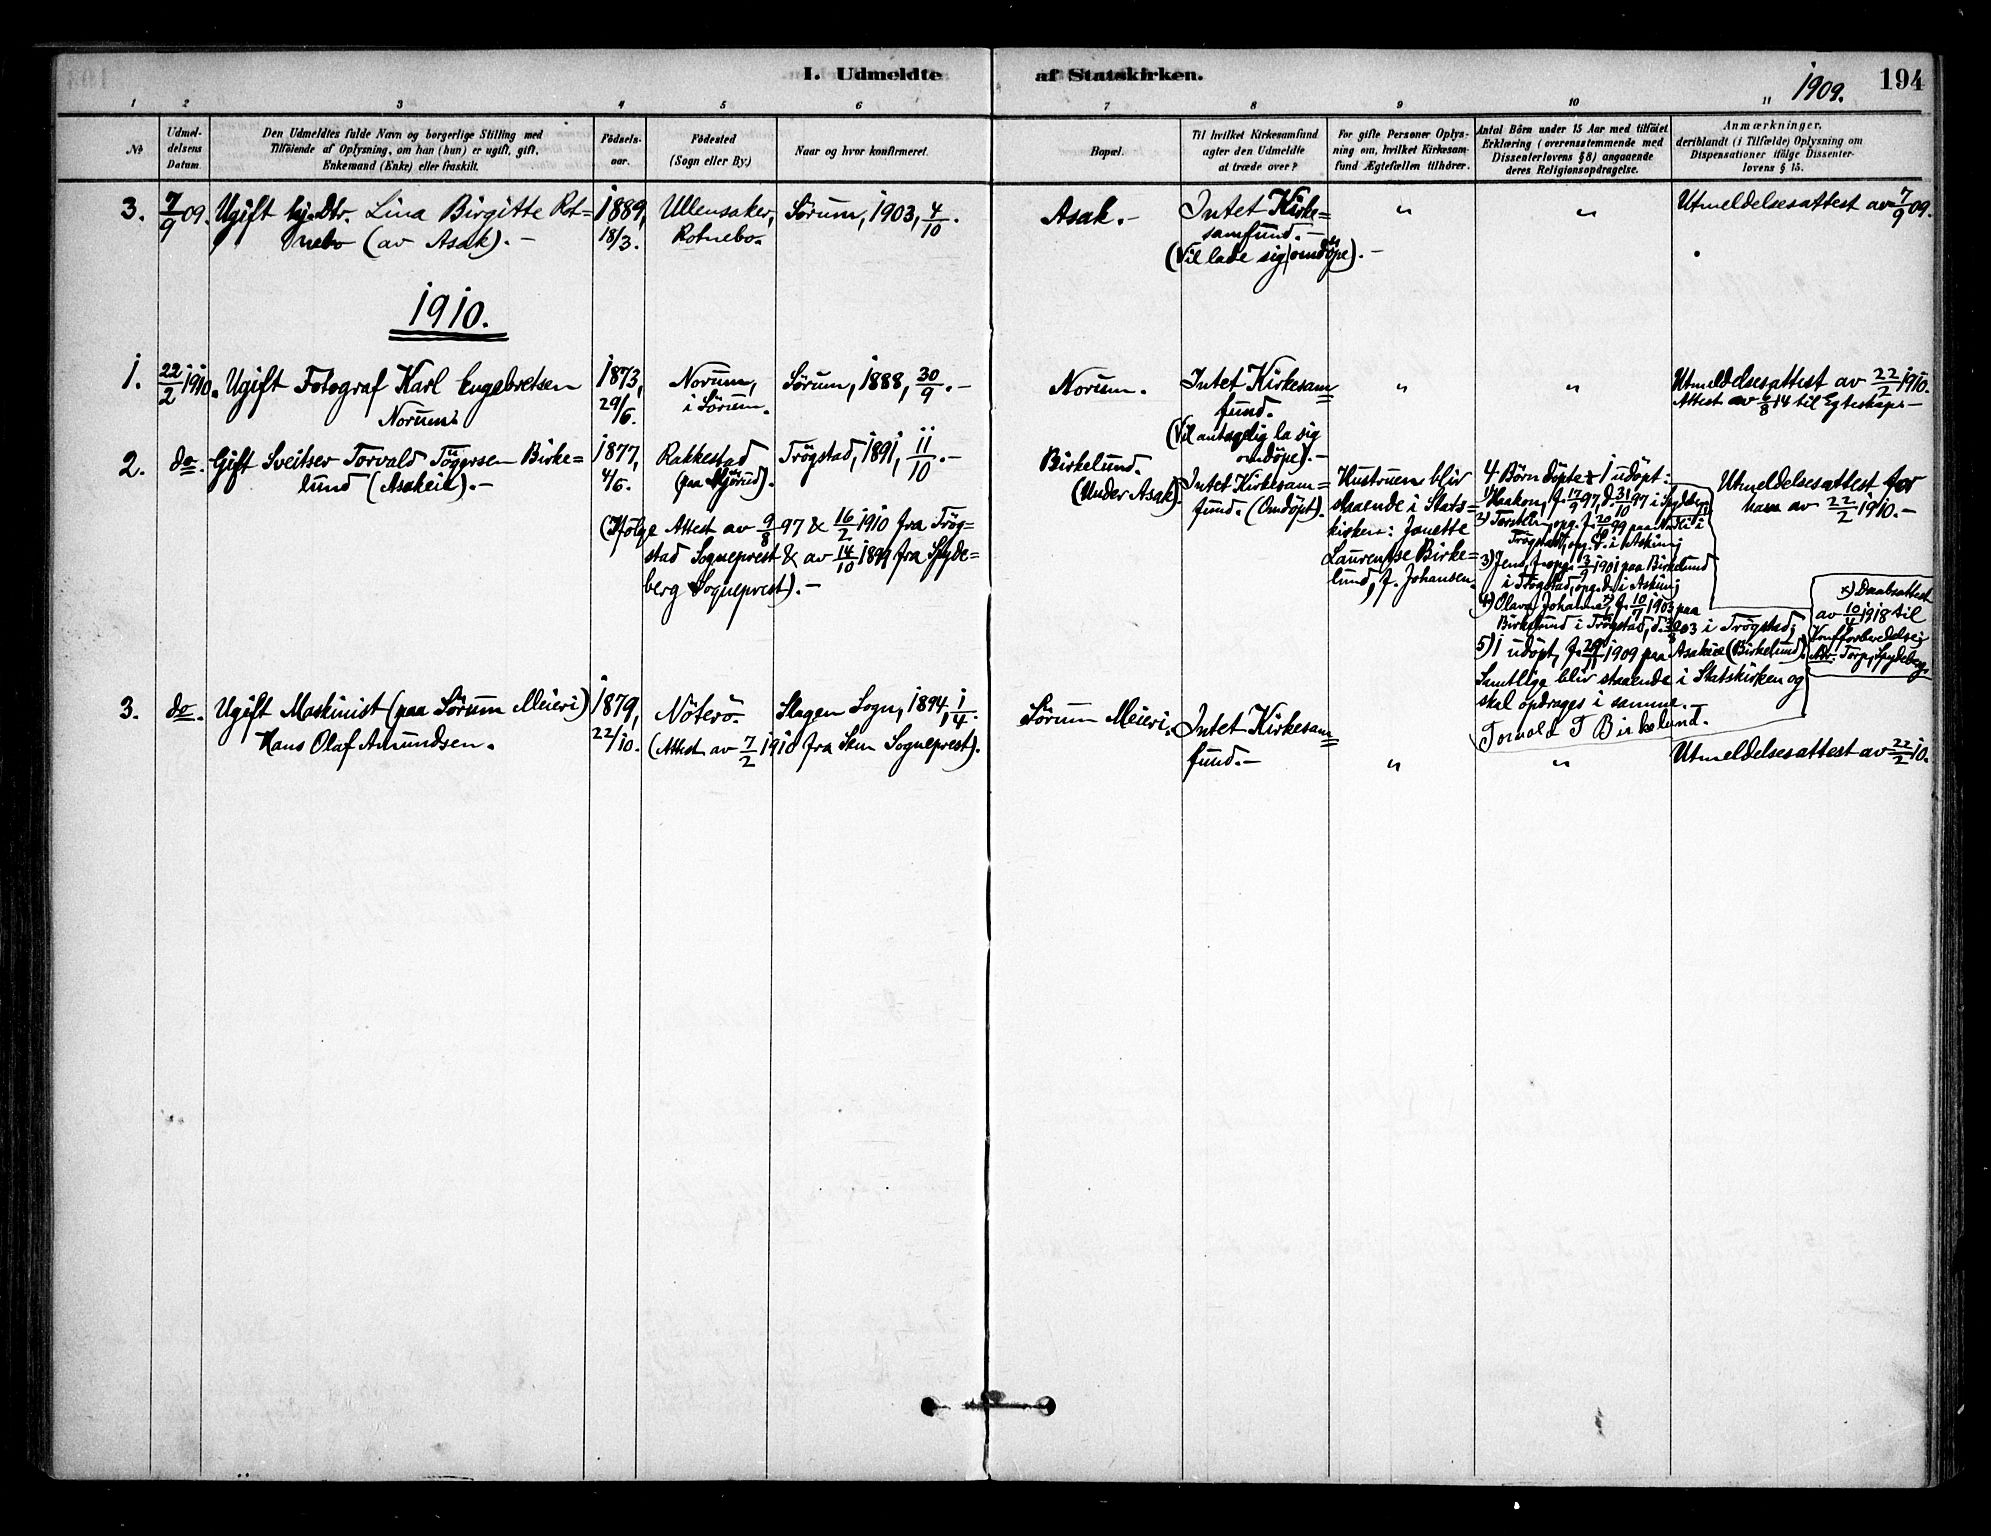 I. Udmeldte af Statskirken.
1909.
194
1 2 3 4 5 6 7 8 9 10 11
No
Udmel-
delsens
Datum.
Den Udmeldtes fulde Navn og borgerlige Stilling med
Tilföiende af Oplysning, om han (hun) er ugift, gift,
Enkemand (Enke) eller fraskilt.
Födsels-
aar.
Födested
(Sogn eller By.)
Naar og hvor konfirmeret.
Bopæl.
Til hvilket Kirkesamfund
agter den Udmeldte
at træde over?
For gifte Personer Oplys-
ning om, hvilket Kirkesam-
fund Ægtefællen tilhörer.
Antal Börn under 15 Aar med tilföiet
Erklæring (overensstemmende med
Dissenterlovens § 8) angaaende
deres Religionsopdragelse.
Anmærkninger,
deriblandt (i Tilfælde) Oplysning om
Dispensationer ifölge Dissenter-
lovens § 15.
3.
7/9 09.
Ugift Gj. Dtr. Lina Birgitte Rot-
nebo (av Asak). —
1889,
18/3.
Ullensaker,
Rotnebo.
Sörum, 1903, 4/10.
Asak. —
Intet Kirke=
samfund. —
(Vil lade sig omdöpe). —
"
"
Utmeldelsesattest av 7/9 09.
1910.
1.
22/2 1910.
Ugift Fotograf Karl Engebretsen
Norum.
1873,
29/6.
Norum,
i Sörum.
Sörum, 1888, 30/9. —
Norum.
Intet Kirkesam=
fund.
(Vil antagelig la sig
omdöpe). —
"
"
Utmeldelsesattest av 22/2 1910.
Attest av 6/8 14 til Egteskap. —
2.
do.
Gift Sveitser Torvald Tögersen Birke=
lund (Asakeie). —
1877,
4/6.
Rakkestad
(paa Mjörud).
Trögstad, 1891, 11/10. —
(Ifölge Attest av 9/8 97 & 16/2 1910 fra Trög-
stad Sogneprest & av 14/10 1899 fra Spyde=
berg Sogneprest). —
Birkelund.
(Under Asak).
Intet Kirkesam=
fund. (Omdöpt).
Hustruen bliv
staaende i Stats=
kirken: Janette
Laurentse Birke=
lund, f. Johansen.
4 Börn döpte & 1 udöpt:
1) Haakon, f. 17/9 97, d. 31/10 97 i Spydeberg
Trögstad, og d. i Askim;
3) Jens, f. 3/9 1901 paa Birkelund
i Trögstad, og d. i Askim;
4) Olava Johanne x), f. 10/7 1903 paa
Birkelund i Trögstad, d. 30/8 03 i Trögstad;
5) 1 udöpt, f. 1909 paa Asakeie (Birkelund).
Samtlige bliv staaende i Statskirken og
skal opdrages i samme. —
Torvald T Birkelund.
Utmeldelsesattest for
ham av 22/2 1910. —
x) Daabsattest
av 10/4 1918 til
Konf.forberedelse;
Adr. Torp, Spydeberg.
3.
do.
Ugift Maskinist (paa Sörum Meieri)
Hans Olaf Amundsen.
1879,
22/10.
Nöterö.
Slagen Sogn, 1894, 1/4.
(Attest av 7/2 1910 fra Sem Sogneprest).
Sörum Meieri.
Intet Kirkesam=
fund. —
"
"
Utmeldelsesattest av 22/2 10.